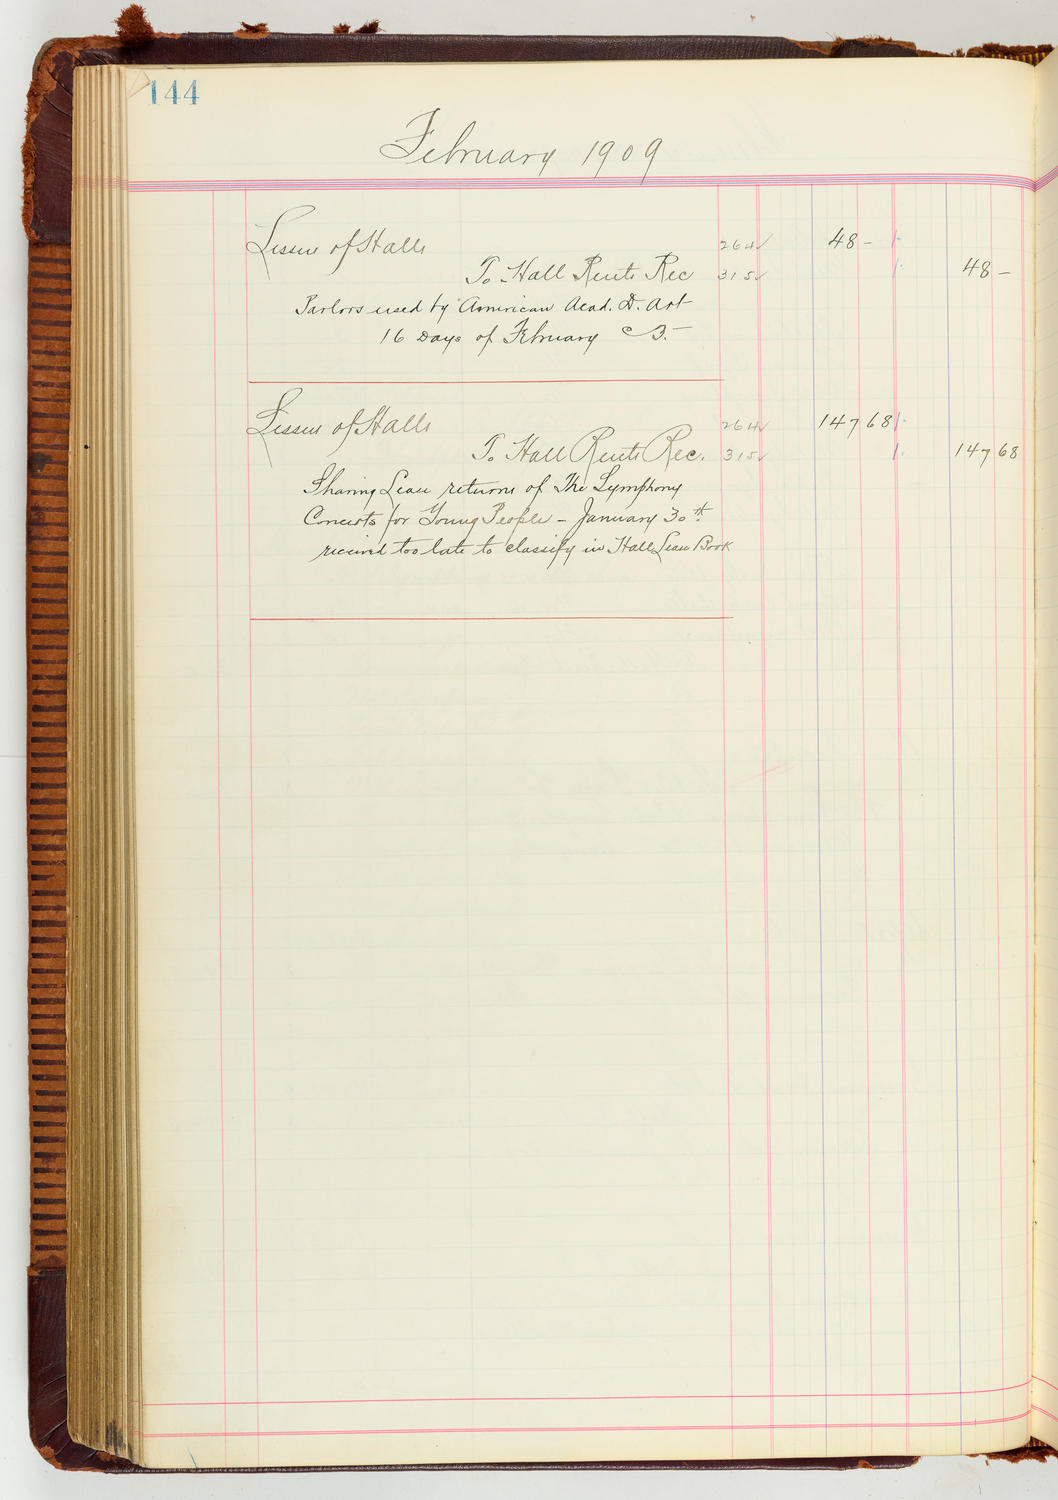 144
February 1909
Lessees of Halls 264 ✓ 48 –
To Hall Rents Rec 315 ✓ 48 –
Parlors used by American Acad. D. Art
16 Days of February @ 3.–
Lessees of Halls 264 ✓ 147 68
To Hall Rents Rec. 315 ✓ 147 68
Sharing Lease returns of The Symphony
Concerts for Young People – January 30th
received too late to classify in Hall Lease Book